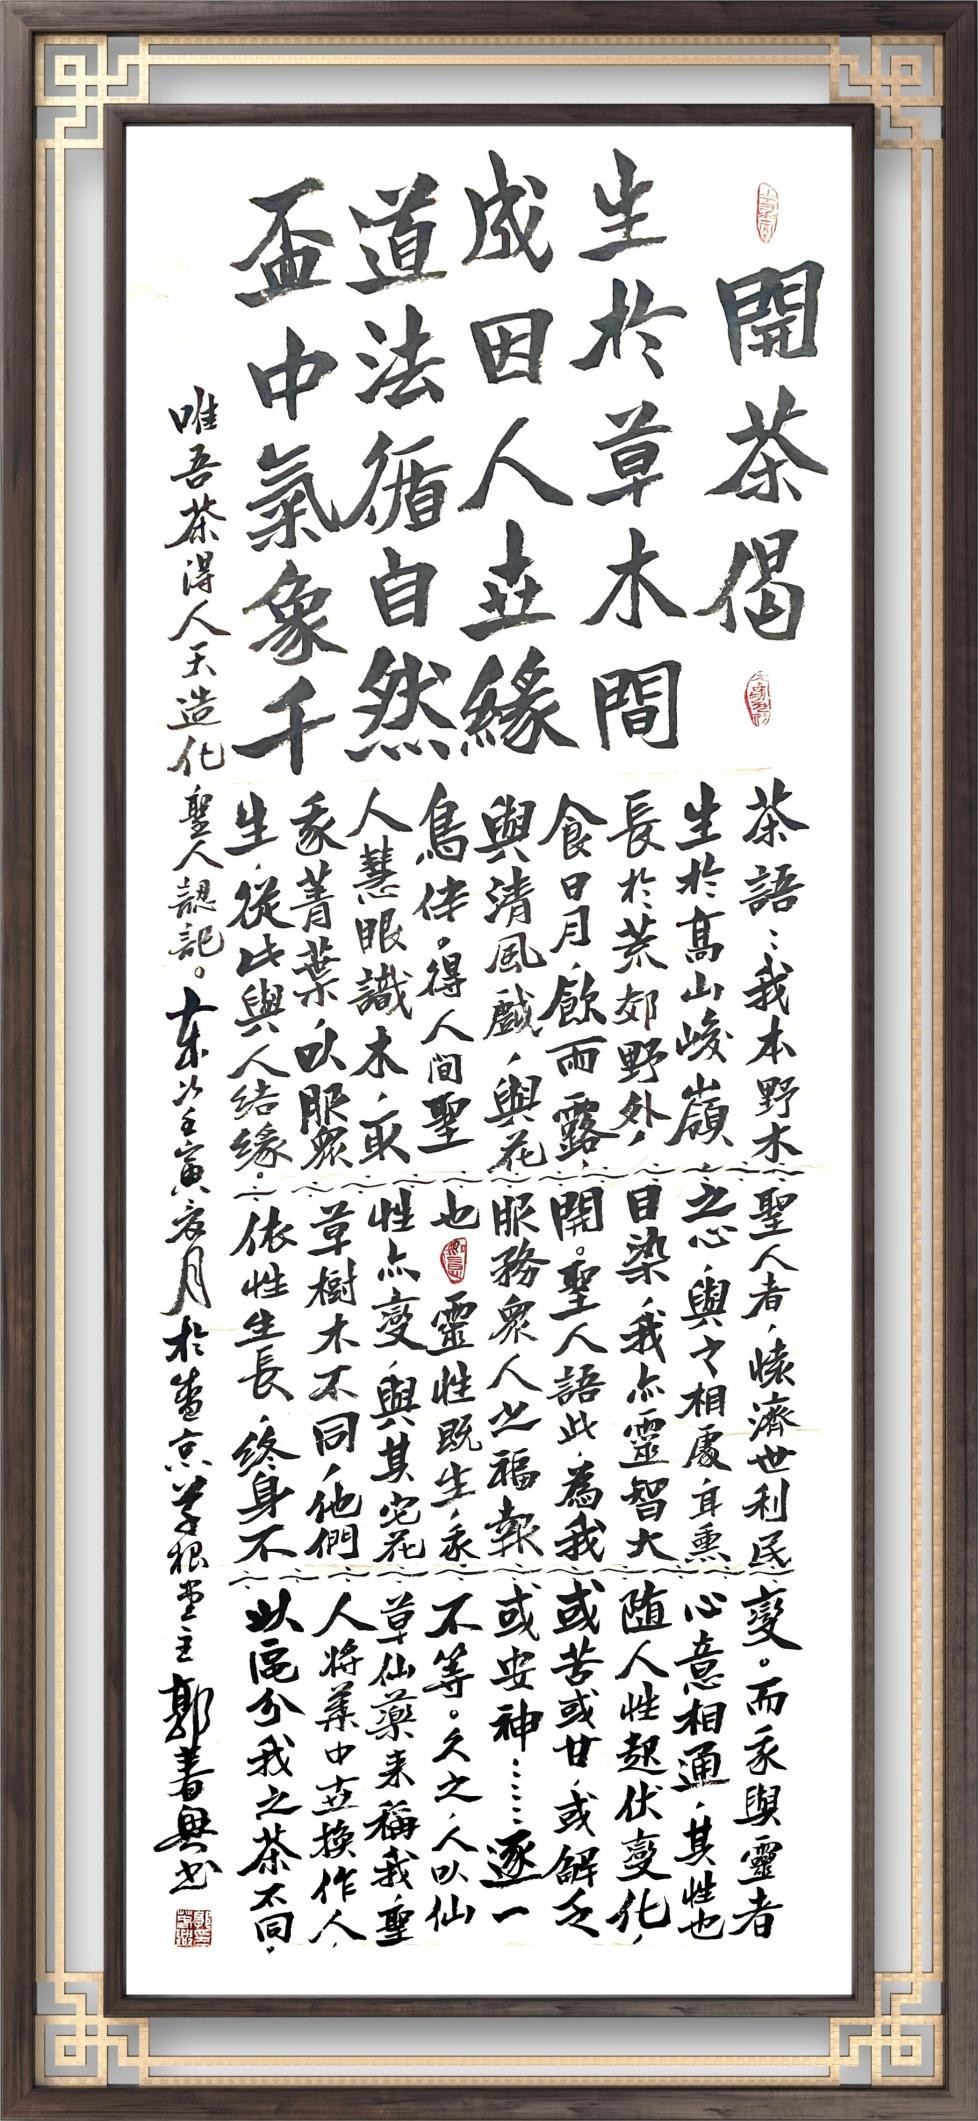 開茶偈
生於草木間
成因人世緣
道法循自然
盃中氣象千
茶語：我本野木
生於高山峻嶺
長於荒郊野外，
食日月，飲雨露，
與清風戲，與花
鳥伴。得人間聖
人慧眼識木，取
我菁葉，以服眾
生，從此與人結緣。
聖人者，懷濟世利民
之心，與之相處，耳熏
目染，我亦靈智大
開。聖人語此，為我
服務眾人之福報
也 靈性既生，我
性亦變，與其它花
草樹木不同，他們
依性生長，終身不
變。而我與靈者
心意相通，其性也
随人性起伏變化，
或苦或甘，或解乏
或安神……逐一
不等。久之，人以仙
草仙藥来稱我，聖
人將葉中世換作人，
以區分我之茶不同，
唯吾茶得人天造化 聖人認記。
壬寅 月於 京草根堂主郭 書